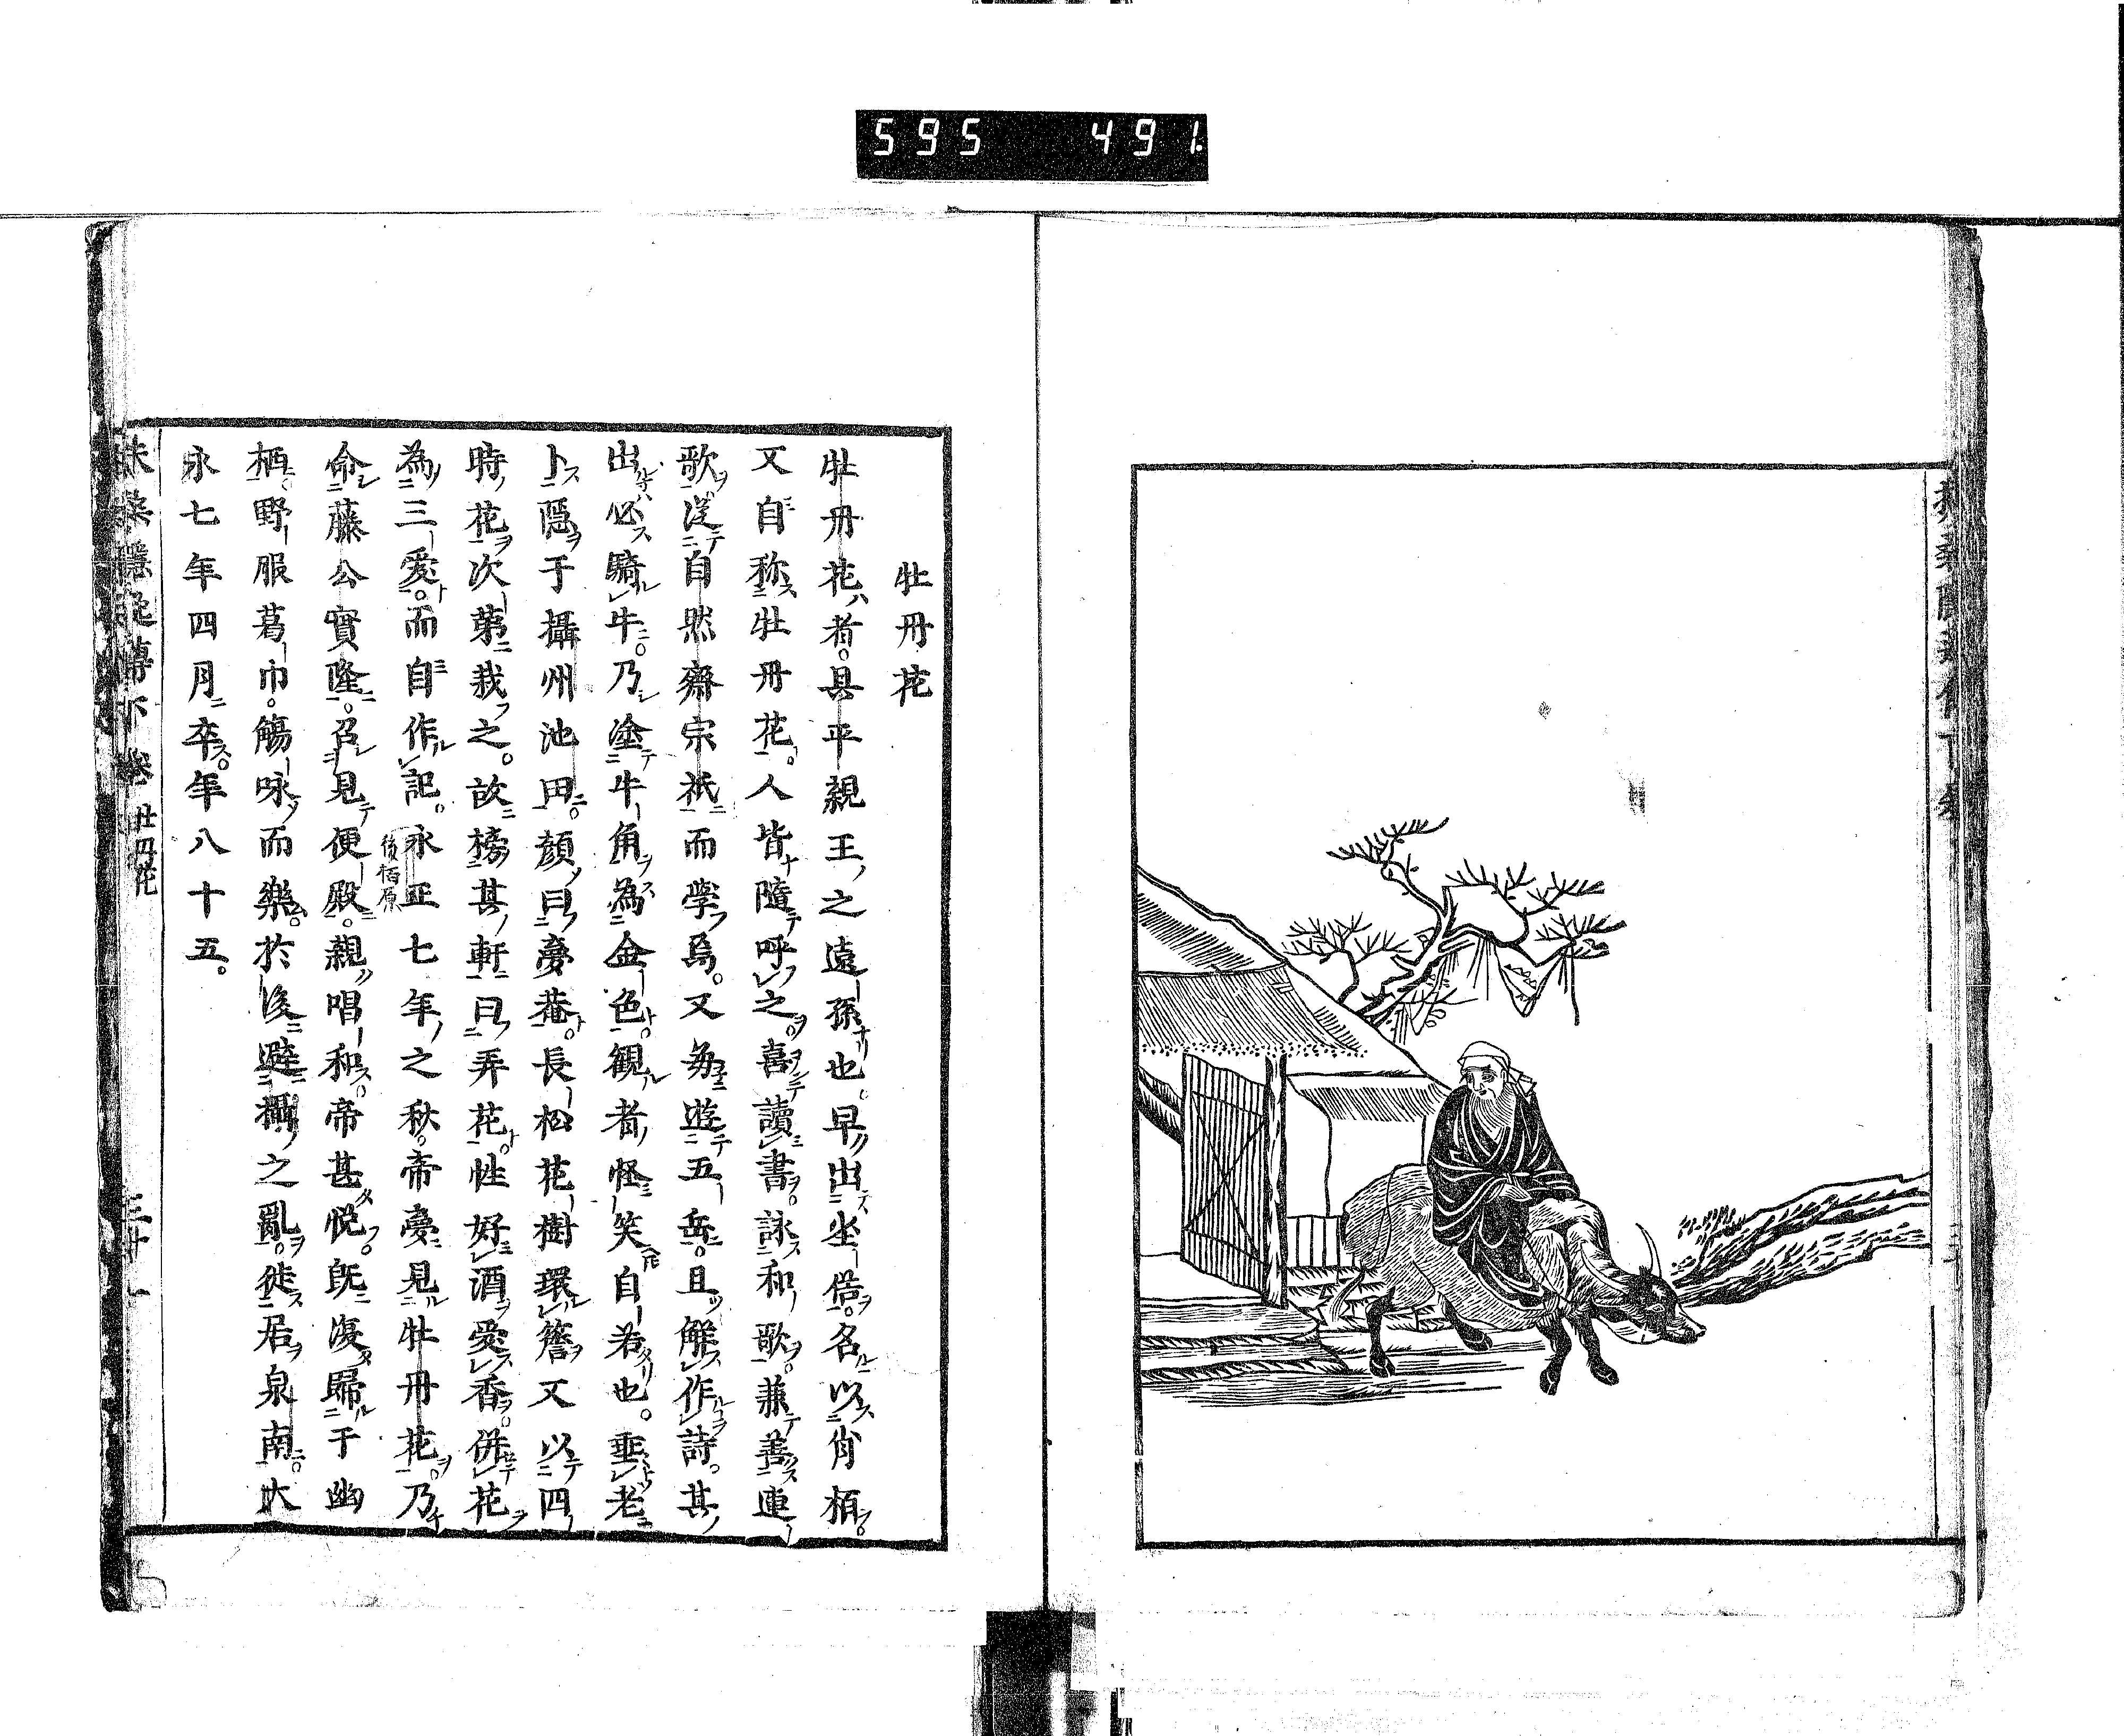 595 491
牡丹花
牡丹花者。具平親王之遠孫也。早出坐俗。名以肖栢。
又自称牡丹花。人皆隨呼之。喜讀書。詠和歌。兼善連
歌。從自然齋宗祇而學焉。又勇遊五岳。且解作詩。其
出必騎牛。乃塗牛角為金色。観者怪笑自若也。垂老
卜隱于攝州池田。顏曰夢菴。長松花樹環簷。又以四
時花次第栽之。故榜其軒曰弄花。性好酒愛香。併花
為三愛。而自作記。永正七年之秋。帝夢見牡丹花。乃
後栢原
命藤公實隆。召見便殿。親唱和。帝甚悦。既復歸于幽
栖。野服葛巾。觴咏而樂。於後避攝之亂。徙居泉南。大
永七年四月卒。年八十五。
扶桑隱逸傳下卷 牡丹花 三十一